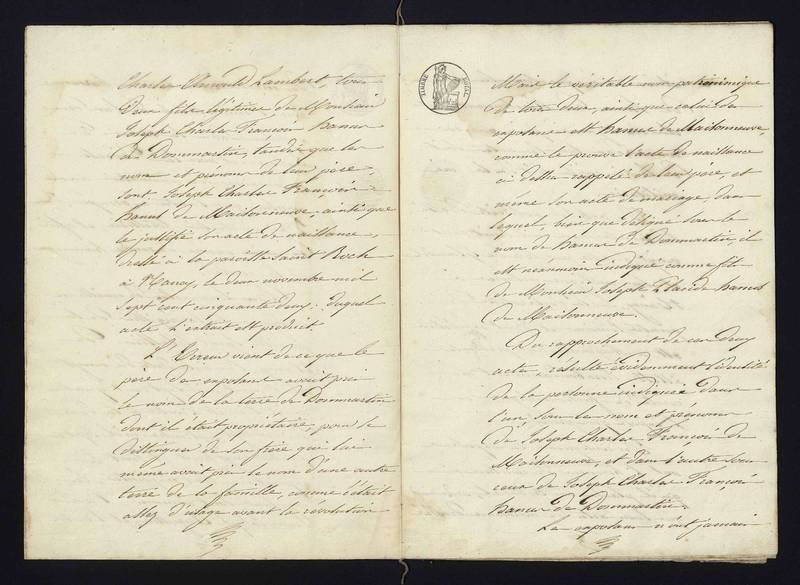 Charles Arnould Lambert, tous
Deux fils légitimes de Monsieur
Joseph Charles François Hanus
de Dommartin, tandis que les
nom et prénoms de leur père,
sont Joseph Charles François
hanus de Maisonneuve, ainsi que
le justifie son acte de naissance
dressé à la paroisse Saint Roch
à Nancy, le deux novembre mil
sept cent cinquante deux. duquel
acte l'extrait est produit
L'Erreur vient de ce que le
père des exposans avait pris
le nom de la terre de Dommartin
dont il était propriétaire, pour se
distinguer de son frère qui lui
même avait pris le nom d'une autre
terre de la famille, comme c'était
assez d'usage avant la révolution
TIMBRE ROYAL
Mais le véritable nom patronimique
de tous deux, ainsi que celui des
exposans est hanus de Maisonneuve,
comme le prouve l'acte de naissance
ci dessus rappelé de leur père, et
même son acte de mariage, dans
lequel, bien que désigné sous le
nom de hanus de Dommartin, il
est néanmoins indiqué comme fils
de Monsieur Joseph Placide hanus
de Maisonneuve.
Du rapprochement de ces deux
actes, résulte évidemment l'identité
de la personne indiquée dans
l'un sous les nom et prénoms
de Joseph Charles François de
Maisonneuve, et dans l'autre sous
ceux de Joseph Charles François
hanus de Dommartin.
Les exposans n'ont jamais